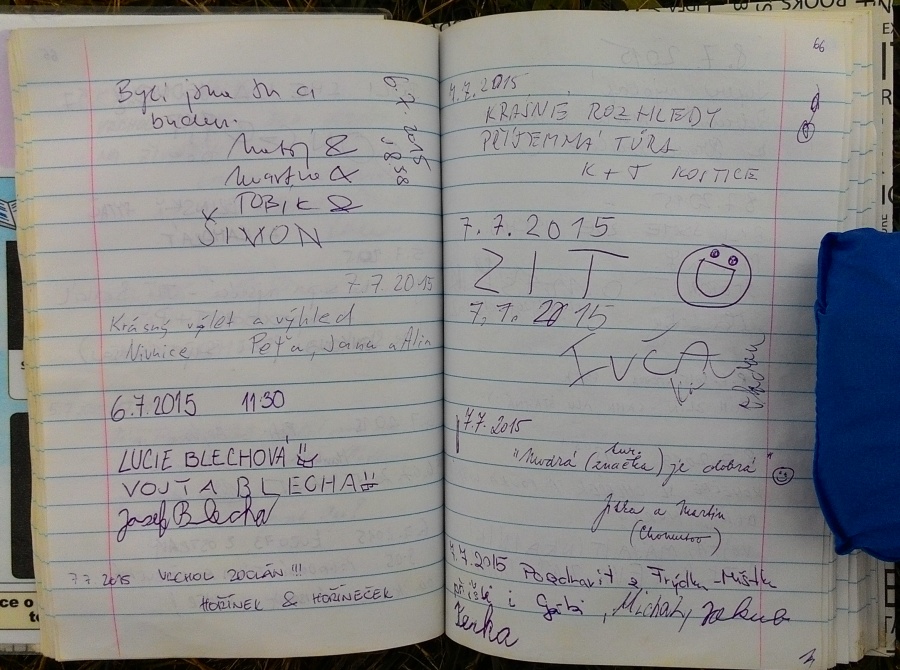 Byli jsme tu a
budem.
6.7.2015
18:38
Matěj &
Martina &
TOBIK &
ŠIMON
7.7.2015
Krásný výlet a výhled
Nivnice Peťa, Jana a Alin
6.7.2015 11:30
LUCIE BLECHOVÁ
VOJTA BLECHA
Josef Blecha
7.7.2015 VRCHOL ZDOLÁN !!!
HOŘÍNEK & HOŘÍNEČEK
66
7.7.2015
KRÁSNÉ ROZHLEDY
PŘÍJEMNÁ TÚRA
K + J KOSTICE
7.7.2015
ZIT
7.7.2015
IVČA
7.7.2015
"Modrá (tur. značka) je dobrá"
Jitka a Martin
(Chomutov)
7.7.2015 Pozdravit z Frýdku-Místku
přišli i Gábi, Michal, Jakub
Lenka